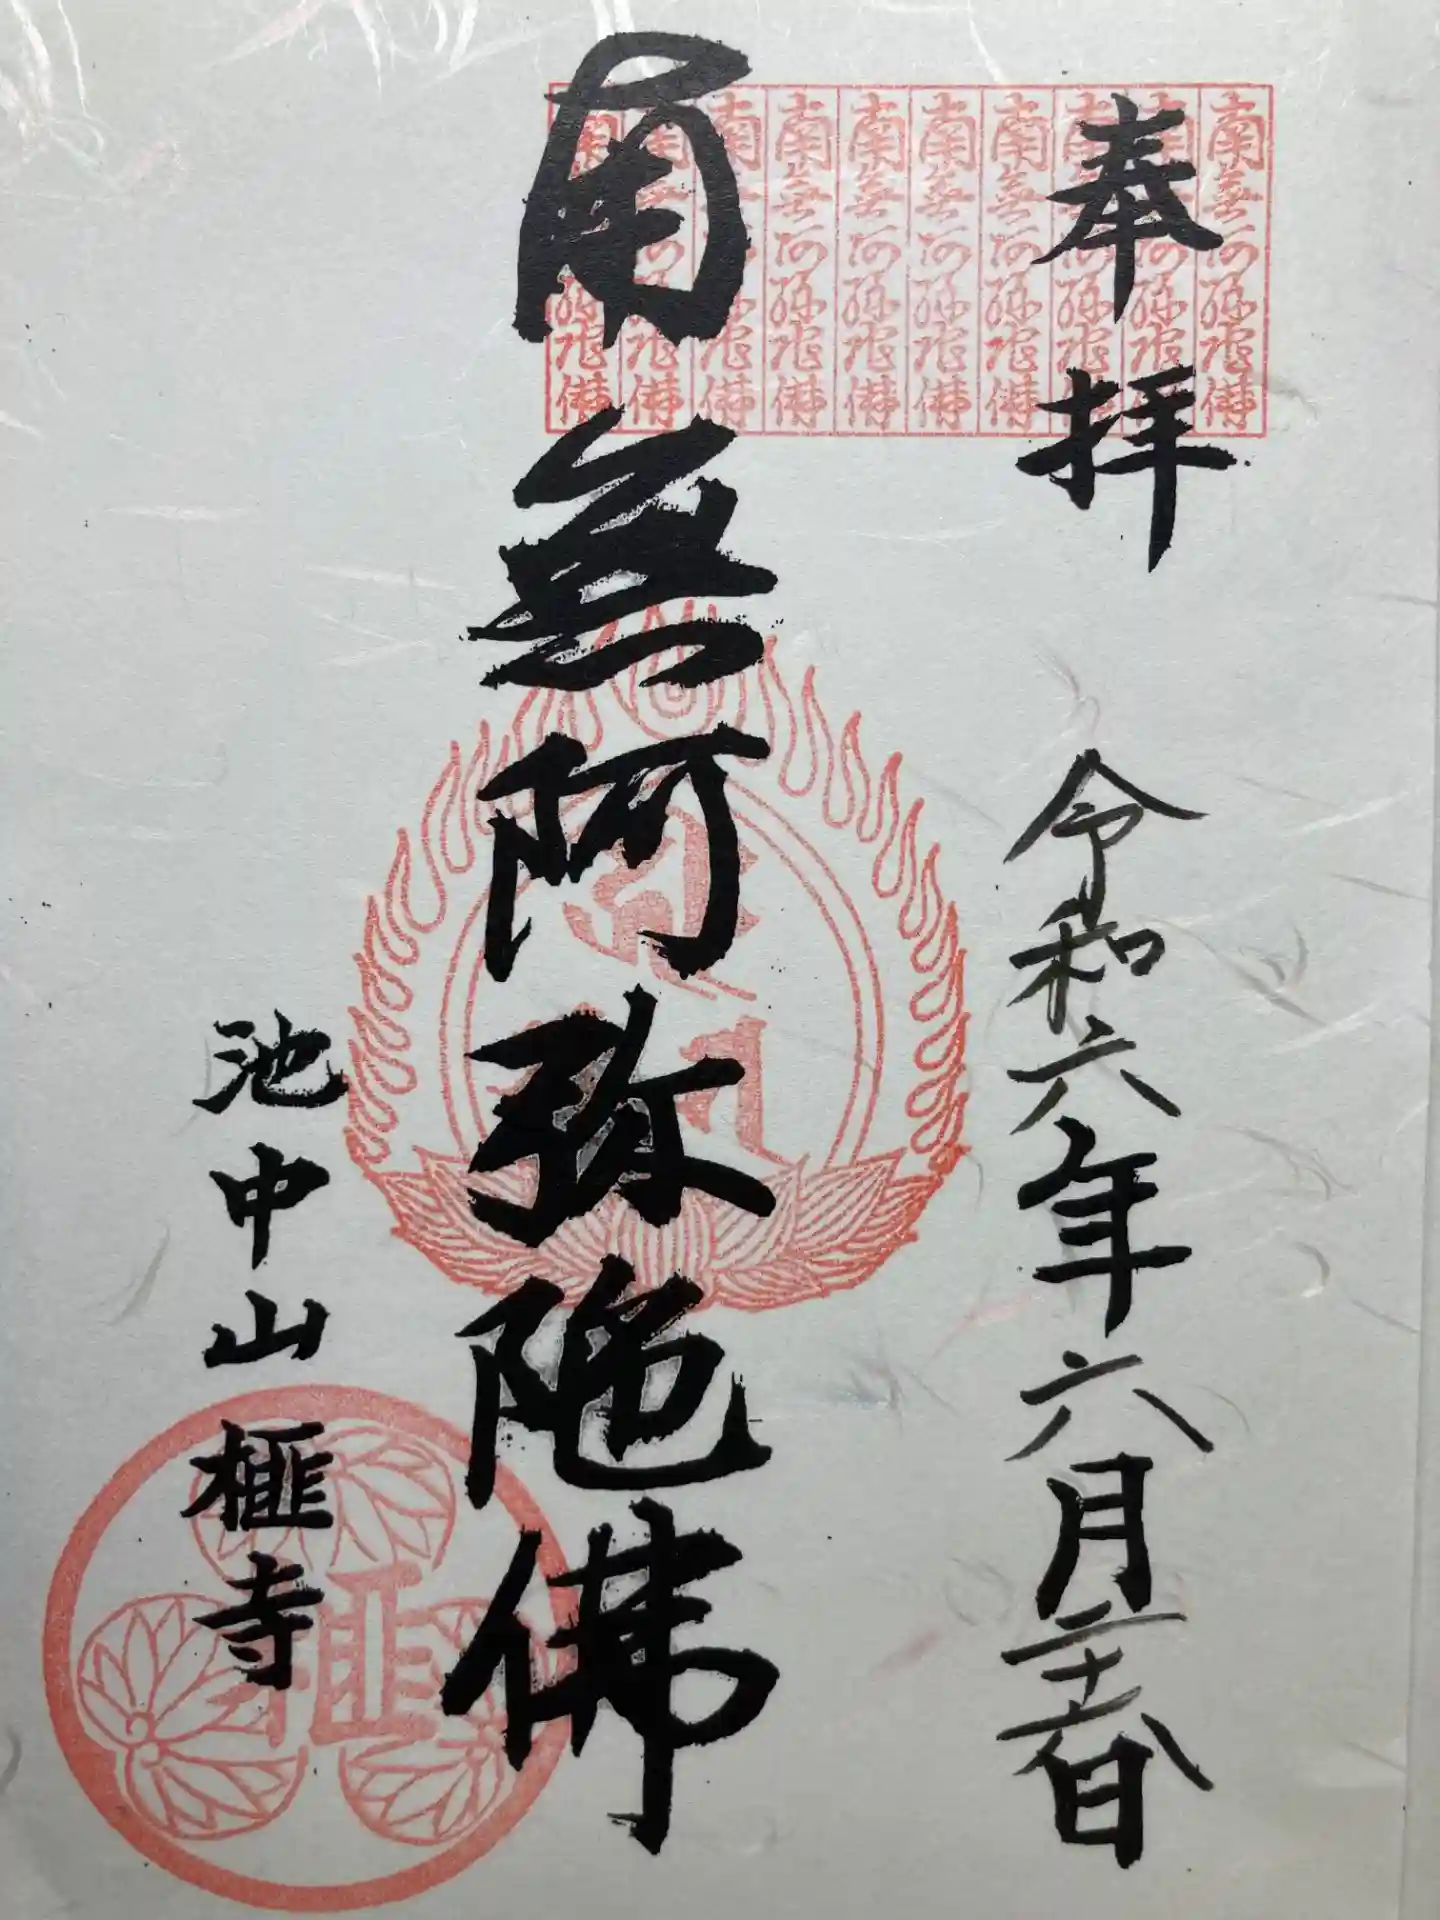 奉拝
令和六年六月二十六日
南無阿弥陀佛
池中山
榧寺
南無阿弥陀佛
南無阿弥陀佛
南無阿弥陀佛
南無阿弥陀佛
南無阿弥陀佛
南無阿弥陀佛
南無阿弥陀佛
南無阿弥陀佛
南無阿弥陀佛
南無阿弥陀佛
榧寺